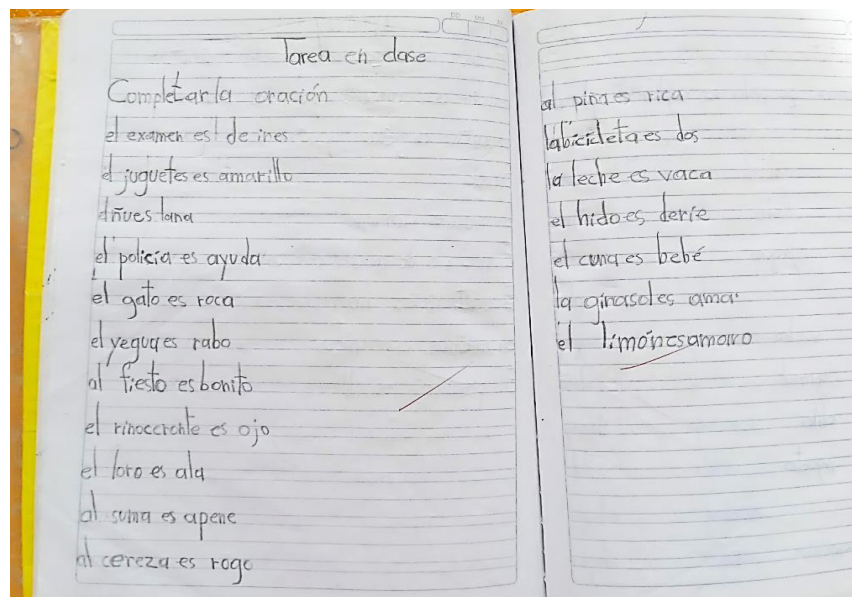 Tarea en clase
Completar la oración
el examen es de ines
el juguetes es amarillo
el ñu es lana
el policía es ayuda
el gato es roca
el yegua es rabo
al fiesto es bonito
el rinoceronte es ojo
el loro es ala
al suma es apene
al cereza es rogo
al piña es rica
la bicicleta es dos
la leche es vaca
el hido es derie
el cuna es bebé
la girasol es amar
el limón es amaro